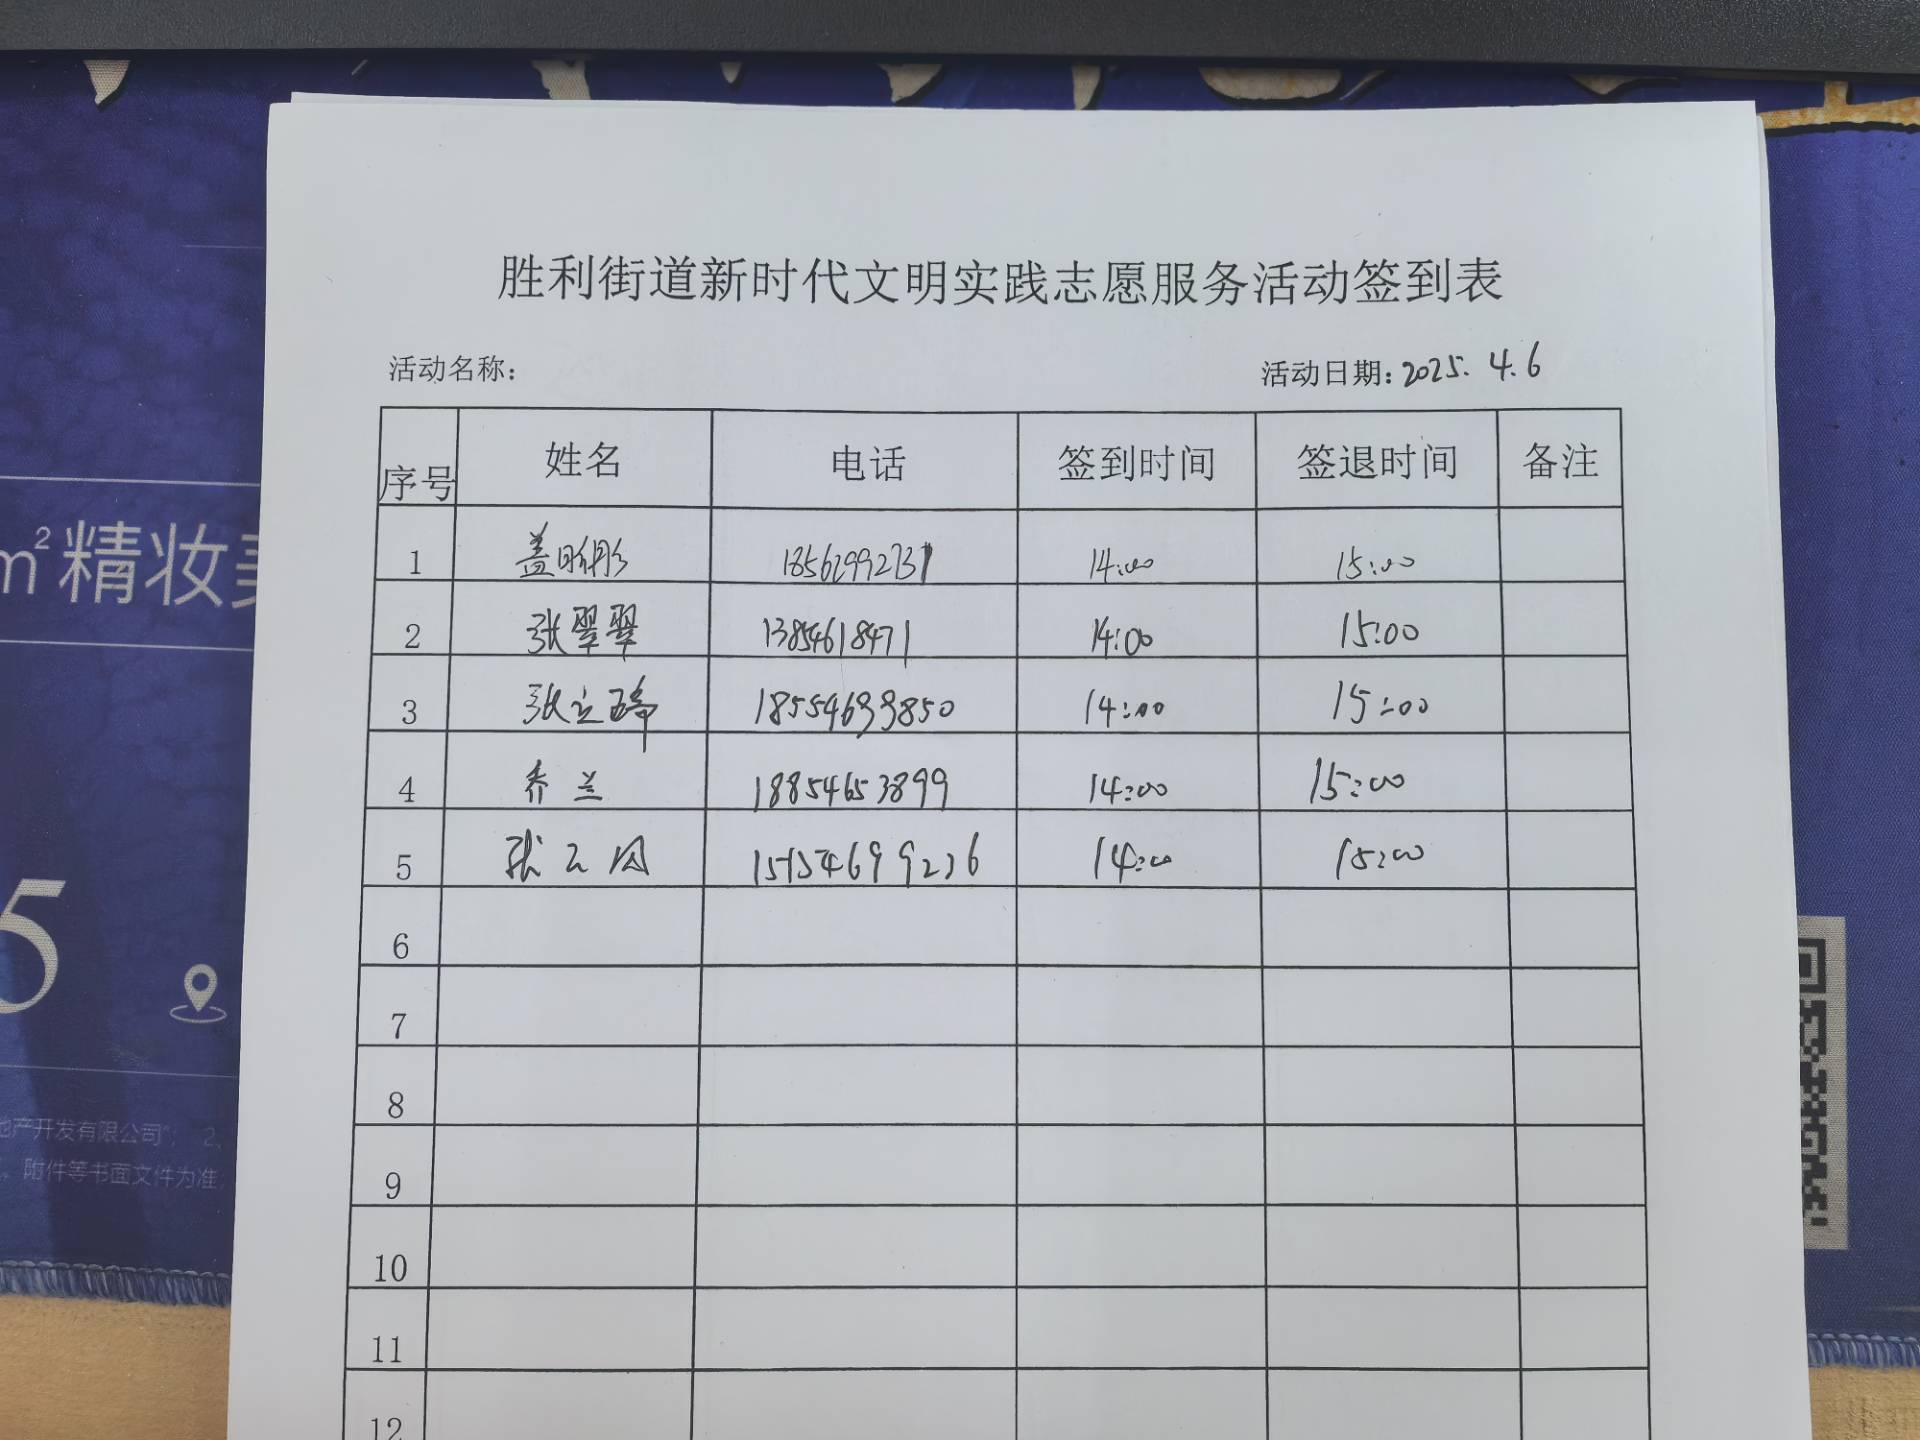 胜利街道新时代文明实践志愿服务活动签到表
活动名称： 活动日期：2025.4.6
序号 姓名 电话 签到时间 签退时间 备注
1 盖昕彤 18562992731 14:00 15:00
2 张翠翠 13854618471 14:00 15:00
3 张立 18554693850 14:00 15:00
4 乔兰 18854653899 14:00 15:00
5 张云凤 15154699236 14:00 15:00
6
7
8
9
10
11
12
m²精妆
5
地产开发有限公司"； 2、
附件等书面文件为准